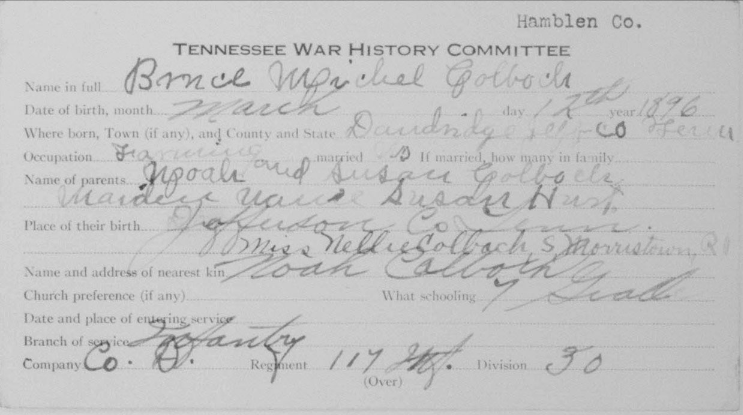 Hamblen Co.
TENNESSEE WAR HISTORY COMMITTEE
Name in full Bruce Michel Colboch
Date of birth, month March day 12th year 1896
Where born, Town (if any), and County and State Dandridge Jeff Co Tenn
Occupation Farming married If married, how many in family
Name of parents Noah and Susan Colboch
Maiden name Susan Hurst
Place of their birth Jefferson Co Tenn.
Miss Nellie Colboch, S Morristown, R1
Name and address of nearest kin Noah Colboch
Church preference (if any) What schooling 7 Grade
Date and place of entering service
Branch of service Infantry
Company Co. D. Regiment 117 Inf. Division 30
(Over)